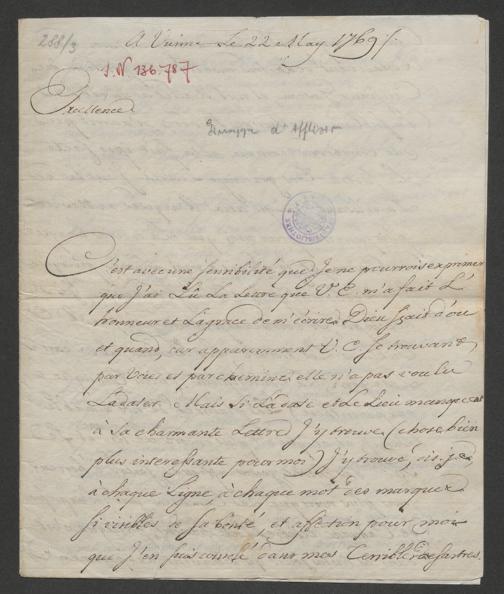 288/3
A Vienne Le 22 May 1769
I. N 136.787
Excellence
Giuseppe d'Affliso
C'est avec une sensibilité que Je ne pourrois exprimer
que J'ai Lû La Lettre que V. E. m'a fait L'
honneur et La grace de m'écrire. Dieu sçait d'ou
et quand, car apparemment V. E. se trouvant
par voies et par chemins, elle n'a pas voulu
La dater. Mais si La date et Le Lieu manquent
à sa charmante Lettre J'y trouve (chose bien
plus interessante pour moi) J'y trouve, dis-je
à chaque Ligne, à chaque mot des marques
si visibles de sa bonté, et affection pour moi
que J'en suis consolé dans mes terribles desastres.